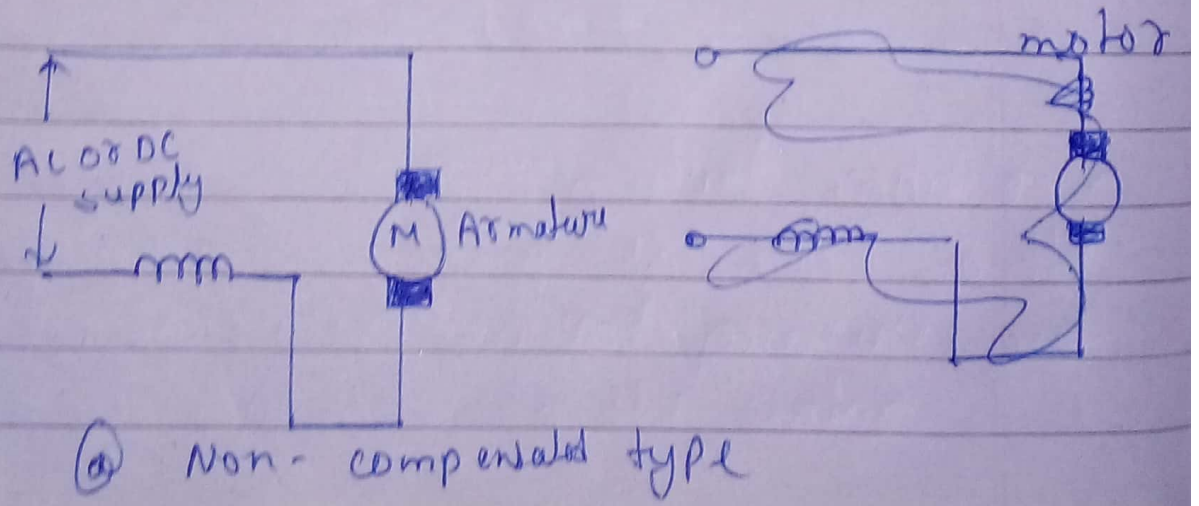 motor
AC or DC
supply
M
Armature
(a) Non-compensated type